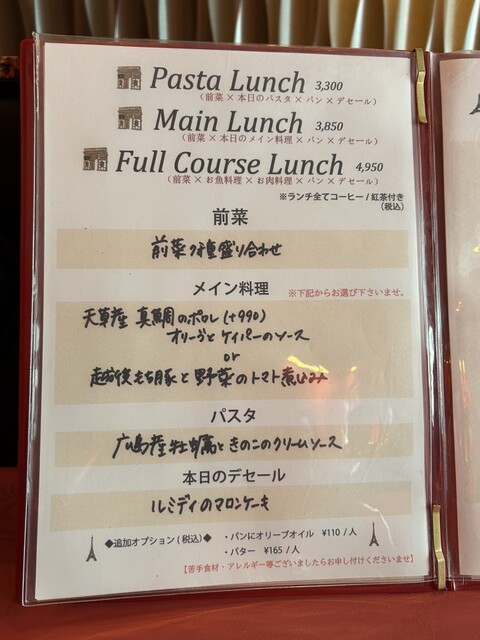 Pasta Lunch 3,300
(前菜×本日のパスタ×パン×デセール)
Main Lunch 3,850
(前菜×本日のメイン料理×パン×デセール)
Full Course Lunch 4,950
(前菜×お魚料理×お肉料理×パン×デセール)
※ランチ全てコーヒー/紅茶付き
(税込)
前菜
前菜7種盛り合わせ
メイン料理 ※下記からお選び下さいませ。
天草産 真鯛のポワレ(+990)
オリーブとケイパーのソース
or
越後もち豚と野菜のトマト煮込み
パスタ
広島産牡蠣ときのこのクリームソース
本日のデセール
ルミディのマロンケーキ
◆追加オプション(税込)◆ ・パンにオリーブオイル ¥110/人
・バター ¥165/人
【苦手食材・アレルギー等ございましたらお申し付けくださいませ】